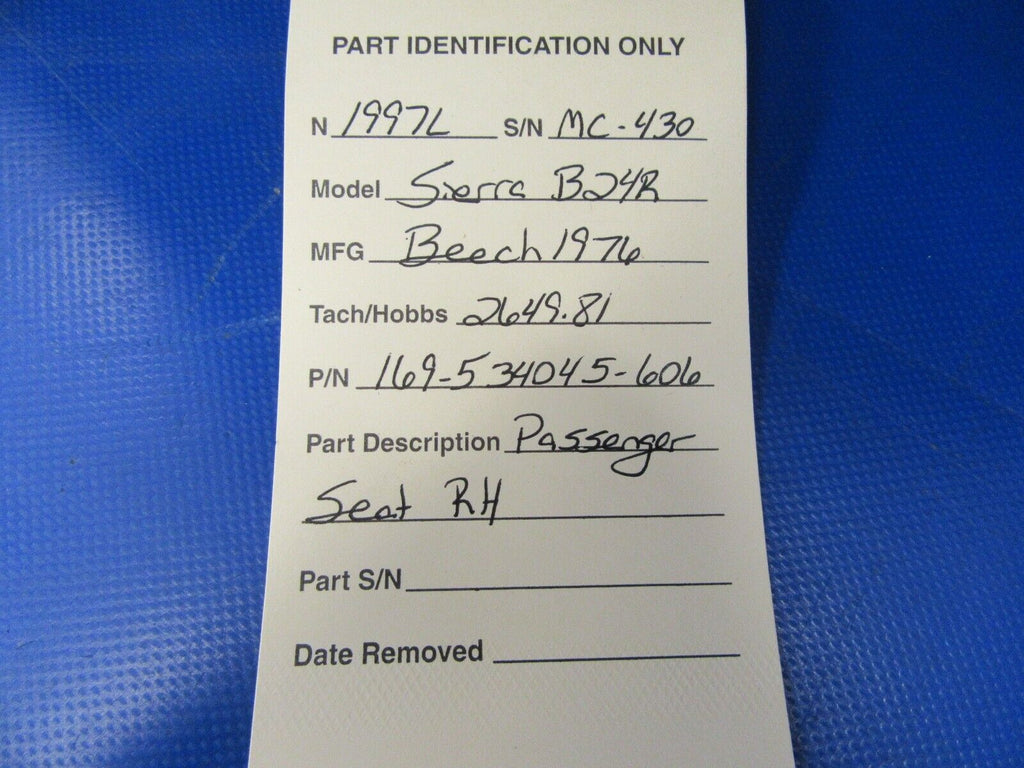 PART IDENTIFICATION ONLY
N 1997L S/N MC-430
Model Sierra B24R
MFG Beech 1976
Tach/Hobbs 2649.81
P/N 169-534045-606
Part Description Passenger
Seat RH
Part S/N
Date Removed